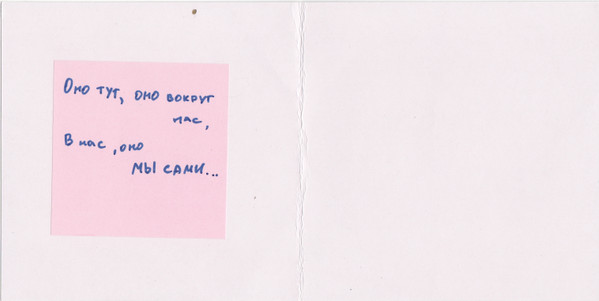 Оно тут, оно вокруг
нас,
В нас, оно
мы сами...